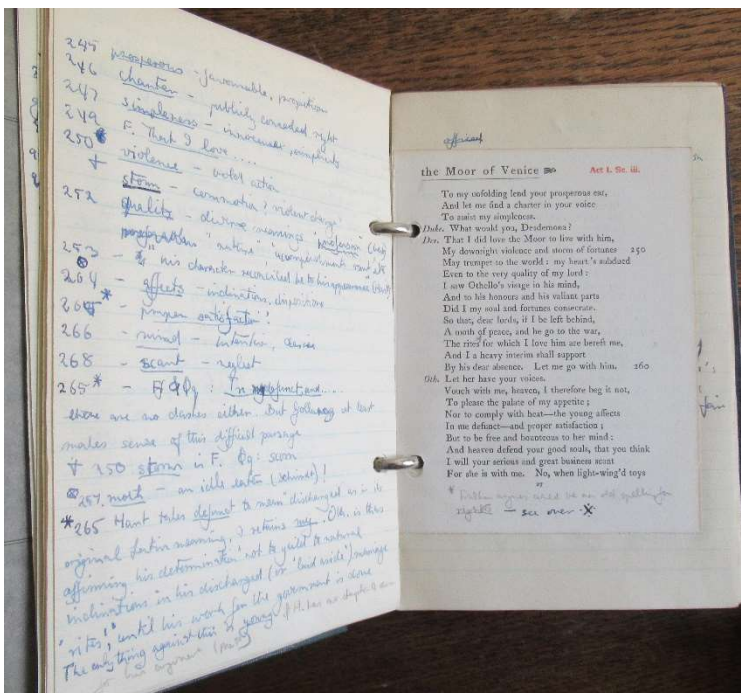 245 prosperous - favourable, propitious
246 charter - publicly conceded right
247 simpleness - innocence, simplicity
249 F. That I love ....
250 violence - violent action
† storm - commotion? violent change
252 quality - diverse meanings
"nature"
253 - his character reconciled me to his appearance
264 - affects - inclinations, dispositions
* - proper satisfaction!
266 - mind - intention, desires
268 - scant - neglect
265* - In my defunct and ....
there are no dashes either. But following at last
makes sense of this difficult passage
† 250 storm in F. Qq: scorn
257. moth - an idle eater (Schmidt)!
*265 Hart takes defunct to mean "discharged" as in its
original Latin meaning, & retains my. Oth. is thus
affirming his determination not to yield to natural
inclinations in his discharged (or "laid aside") marriage
'rites', until his work for the government is done
The only thing against this is young.
affairs
the Moor of Venice Act I. Sc. iii.
To my unfolding lend your prosperous ear,
And let me find a charter in your voice
To assist my simpleness.
Duke. What would you, Desdemona?
Des. That I did love the Moor to live with him,
My downright violence and storm of fortunes 250
May trumpet to the world: my heart's subdued
Even to the very quality of my lord:
I saw Othello's visage in his mind,
And to his honours and his valiant parts
Did I my soul and fortunes consecrate.
So that, dear lords, if I be left behind,
A moth of peace, and he go to the war,
The rites for which I love him are bereft me,
And I a heavy interim shall support
By his dear absence. Let me go with him. 260
Oth. Let her have your voices.
Vouch with me, heaven, I therefore beg it not,
To please the palate of my appetite;
Nor to comply with heat—the young affects
In me defunct—and proper satisfaction;
But to be free and bounteous to her mind:
And heaven defend your good souls, that you think
I will your serious and great business scant
For she is with me. No, when light-wing'd toys
old spelling for
rights - see over